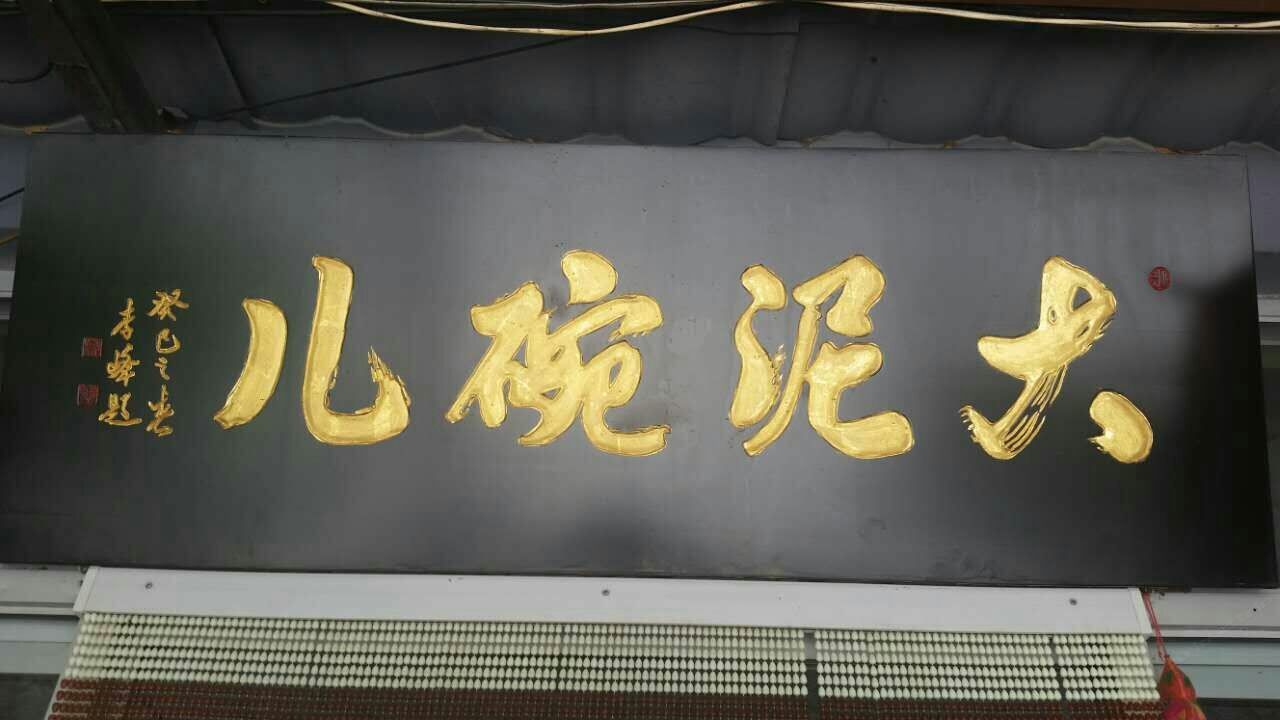 大泥碗儿
癸巳之春
李峰题